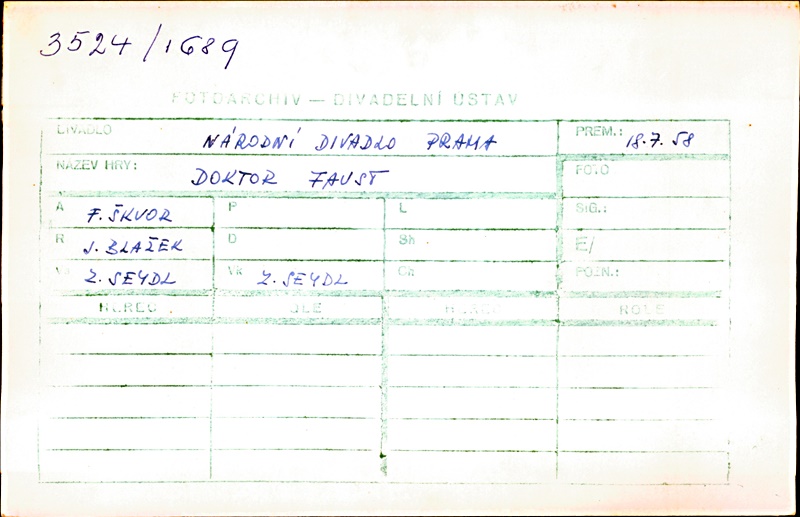 3524/1689
FOTOARCHIV — DIVADELNÍ ÚSTAV
DIVADLO NÁRODNÍ DIVADLO PRAHA PREM.: 18.7.58
NÁZEV HRY: DOKTOR FAUST FOTO
A F. ŠKVOR P L SIG.:
R J. BLAŽEK D Sh E/
Z. SEYDL Vk Z. SEYDL Ch POZN.:
HEREC ROLE ROLE